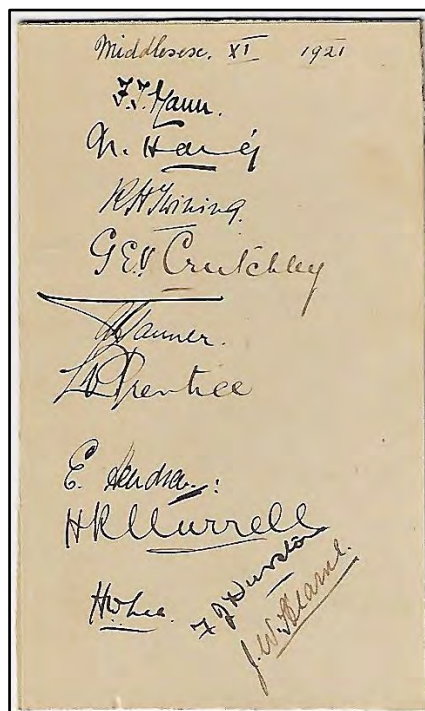 Middlesex. XI 1921
F.T. Mann.
N. Haig
R H Twining.
G E V Crutchley
L V Prentice
E. Hendren:
H R Murrell
H W Lee.
F J Durston
J. W. Hearne.